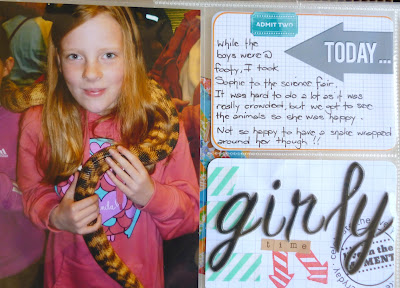 ADMIT TWO
TODAY...
While the
boys were @
footy, I took
Sophie to the science fair.
It was hard to do a lot as it was
really crowded, but we got to see
the animals so she was happy.
Not so happy to have a snake wrapped
around her though !!
girly
time